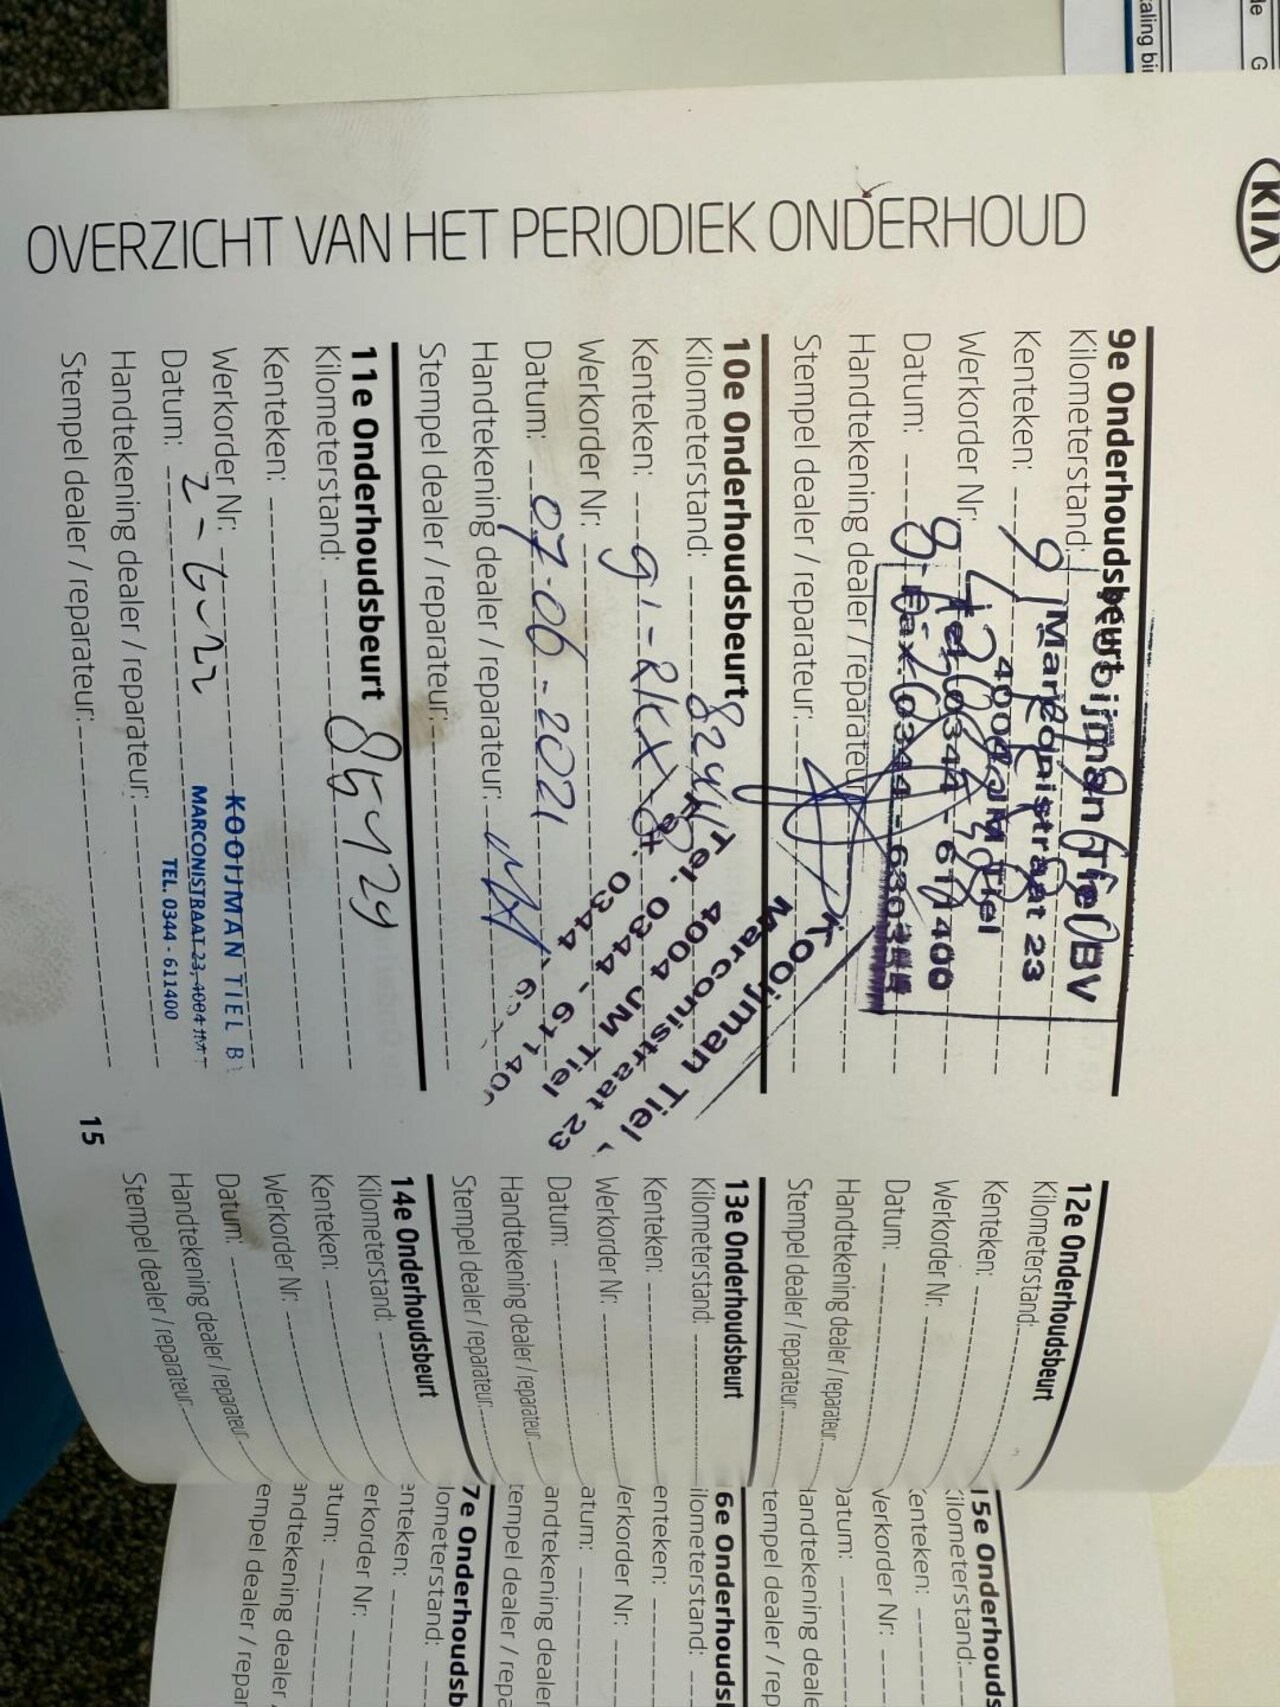 KIA
OVERZICHT VAN HET PERIODIEK ONDERHOUD
9e Onderhoudsbeurt
Kilometerstand:
Kenteken:
Werkorder Nr:
Datum:
Handtekening dealer / reparateur
Stempel dealer / reparateur:
Kooijman Tiel BV
Marconistraat 23
4004 JM Tiel
Tel. 0344 - 611400
Fax 0344 - 630344
10e Onderhoudsbeurt
Kilometerstand:
Kenteken:
Werkorder Nr:
Datum: 07-06-2021
Handtekening dealer / reparateur:
Stempel dealer / reparateur:
Kooijman Tiel
Marconistraat 23
4004 JM Tiel
Tel. 0344 - 611400
0344
11e Onderhoudsbeurt
Kilometerstand:
Kenteken:
Werkorder Nr:
Datum: 2-6-22
Handtekening dealer / reparateur:
Stempel dealer / reparateur:
KOOIJMAN TIEL B
MARCONISTRAAT 23, 4004
TEL. 0344 - 611400
15
12e Onderhoudsbeurt
Kilometerstand:
Kenteken:
Werkorder Nr:
Datum:
Handtekening dealer / reparateur:
Stempel dealer / reparateur:
13e Onderhoudsbeurt
Kilometerstand:
Kenteken:
Werkorder Nr:
Datum:
Handtekening dealer / reparateur:
Stempel dealer / reparateur:
14e Onderhoudsbeurt
Kilometerstand:
Kenteken:
Werkorder Nr:
Datum:
Handtekening dealer / reparateur:
Stempel dealer / reparateur:
15e Onderhouds
ilometerstand:
enteken:
Verkorder Nr:
atum:
landtekening deale
tempel dealer / rep
6e Onderhouds
ilometerstand:
enteken:
erkorder Nr:
atum:
andtekening dealer
tempel dealer / repa
7e Onderhoudsb
lometerstand:
enteken:
erkorder Nr:
atum:
andtekening dealer
empel dealer / repar